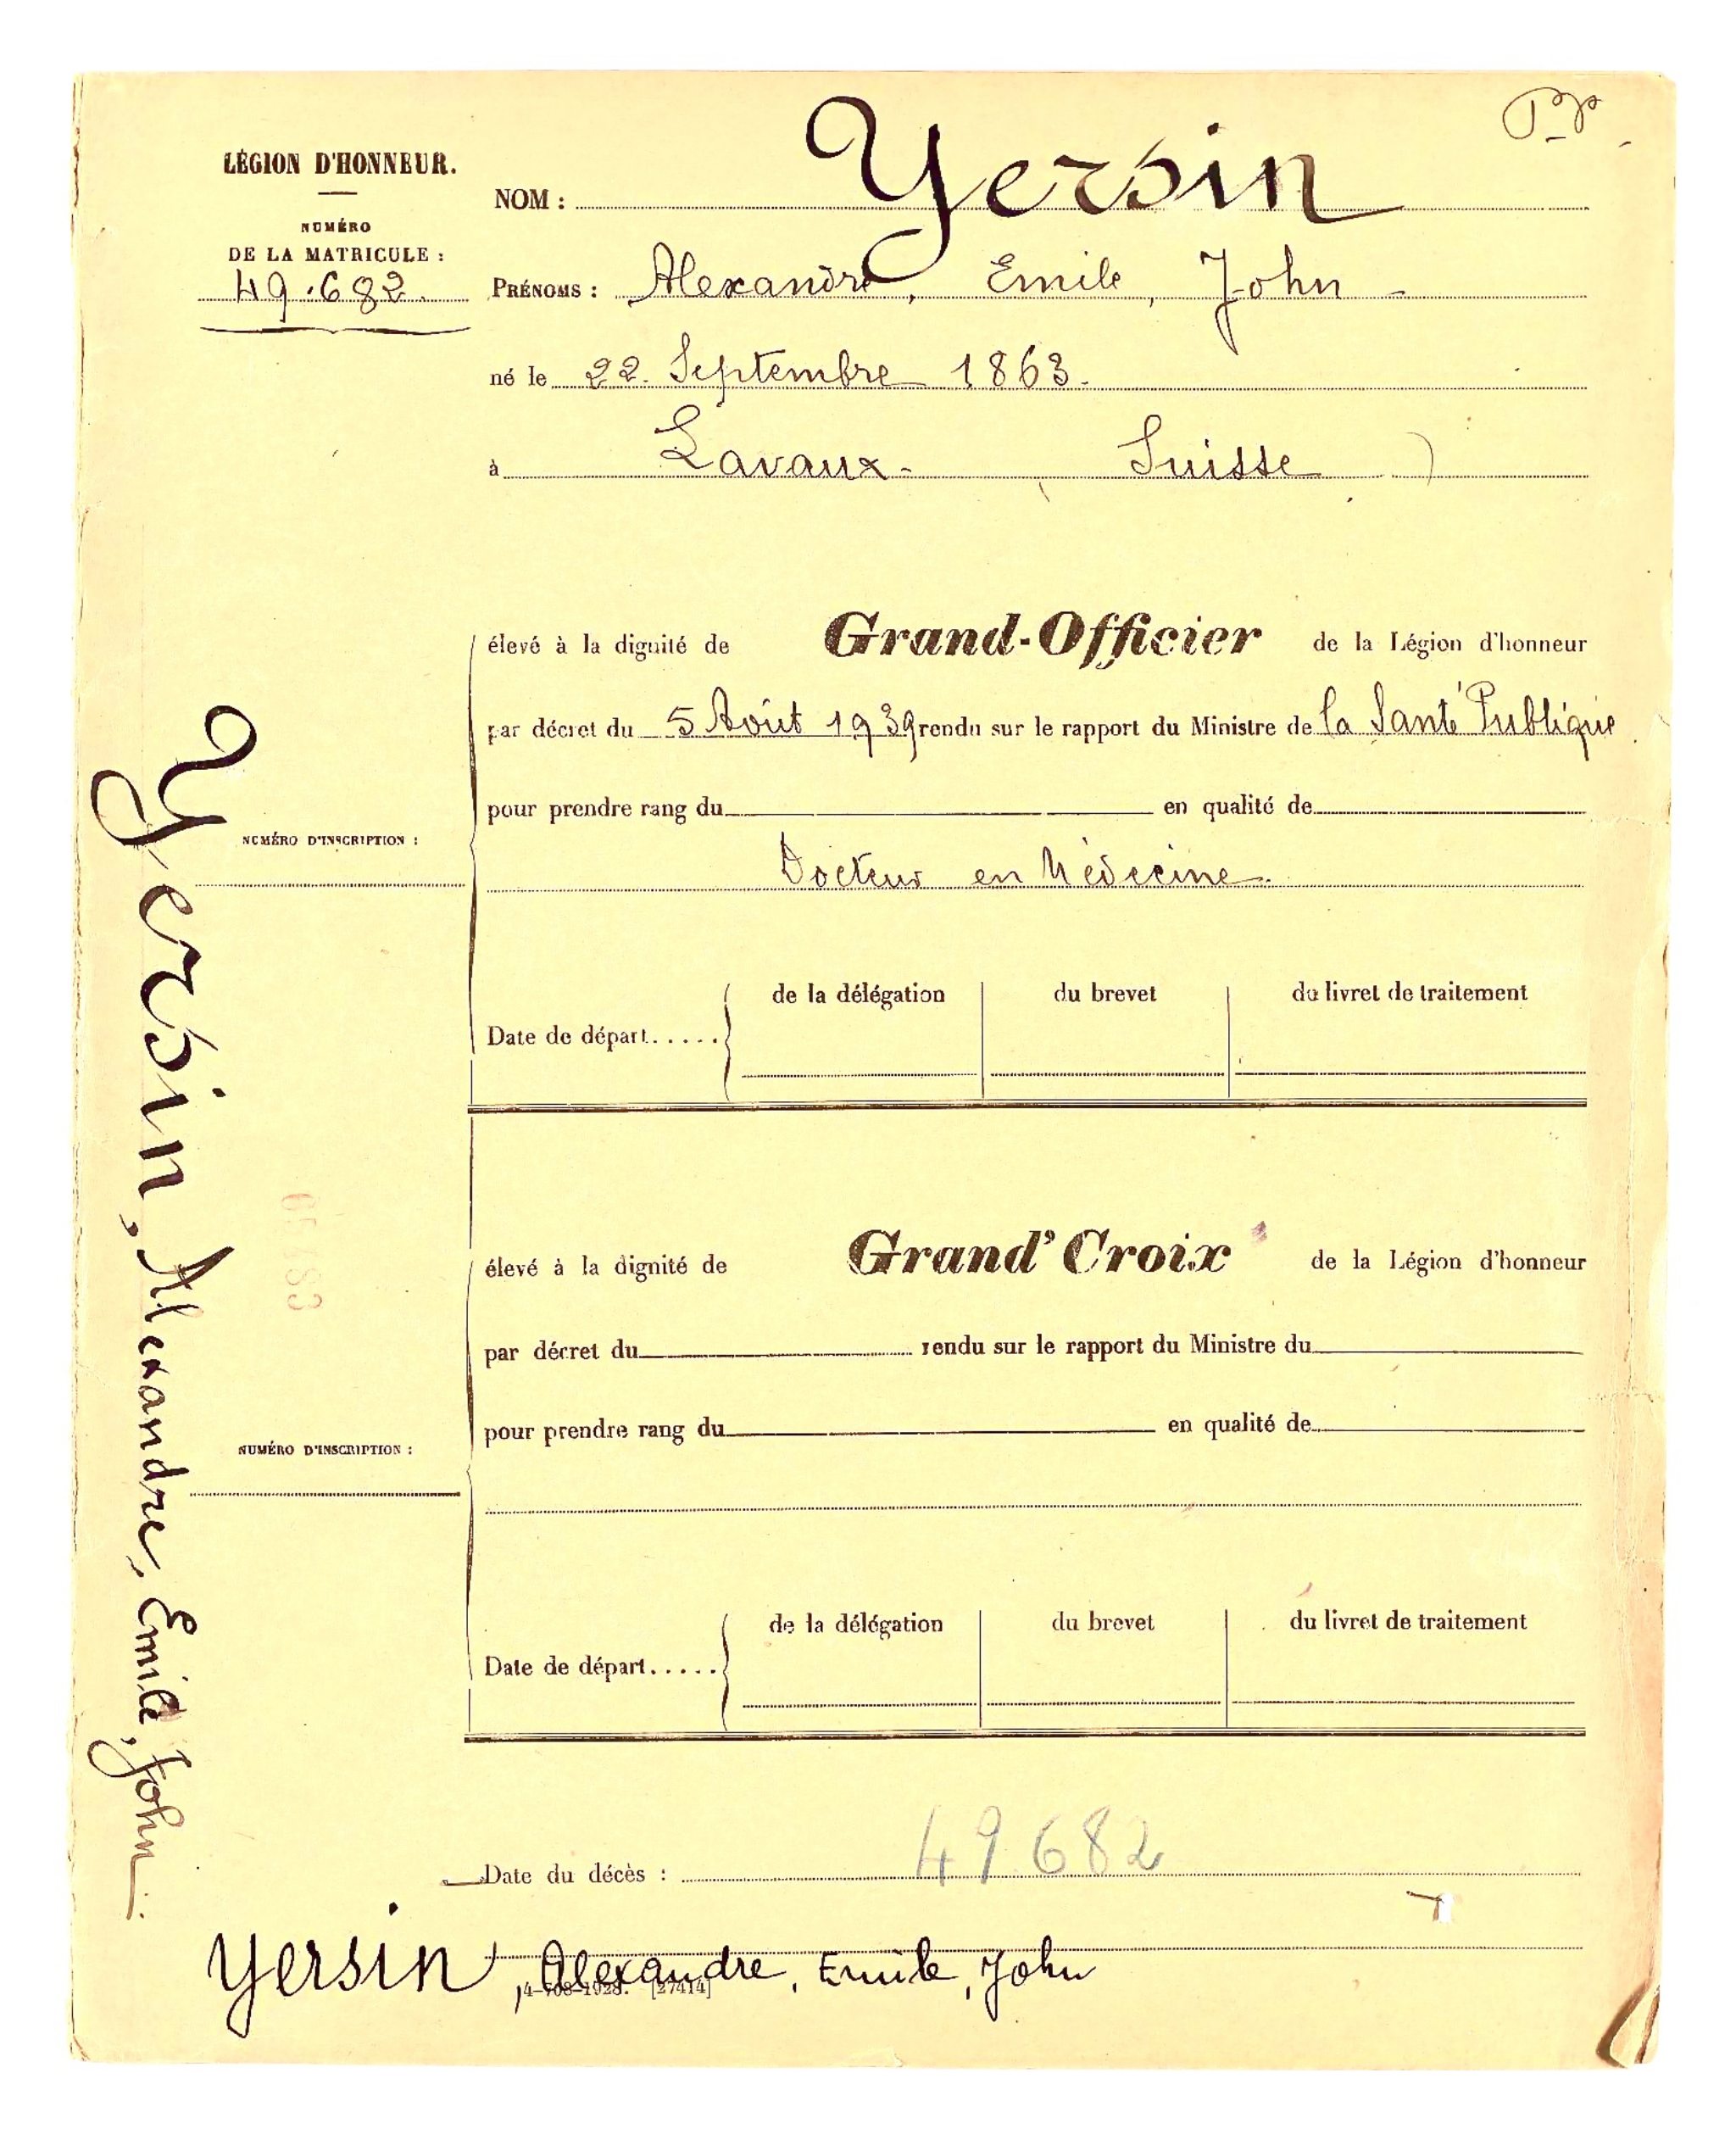 LÉGION D'HONNEUR.
NUMÉRO
DE LA MATRICULE :
49.682.
NOM : Yersin
PRÉNOMS : Alexandre, Emile, John
né le 22. Septembre 1863.
à Lavaux - Suisse
élevé à la dignité de Grand-Officier de la Légion d'honneur
par décret du 5 Août 1939 rendu sur le rapport du Ministre de la Santé Publique
pour prendre rang du en qualité de
NUMÉRO D'INSCRIPTION :
Docteur en Médecine.
de la délégation du brevet du livret de traitement
Date de départ.....
élevé à la dignité de Grand'Croix de la Légion d'honneur
par décret du rendu sur le rapport du Ministre du
pour prendre rang du en qualité de
NUMÉRO D'INSCRIPTION :
de la délégation du brevet du livret de traitement
Date de départ.....
Date du décès : 49682
Yersin, Alexandre, Emile, John
Yersin, Alexandre, Emile, John